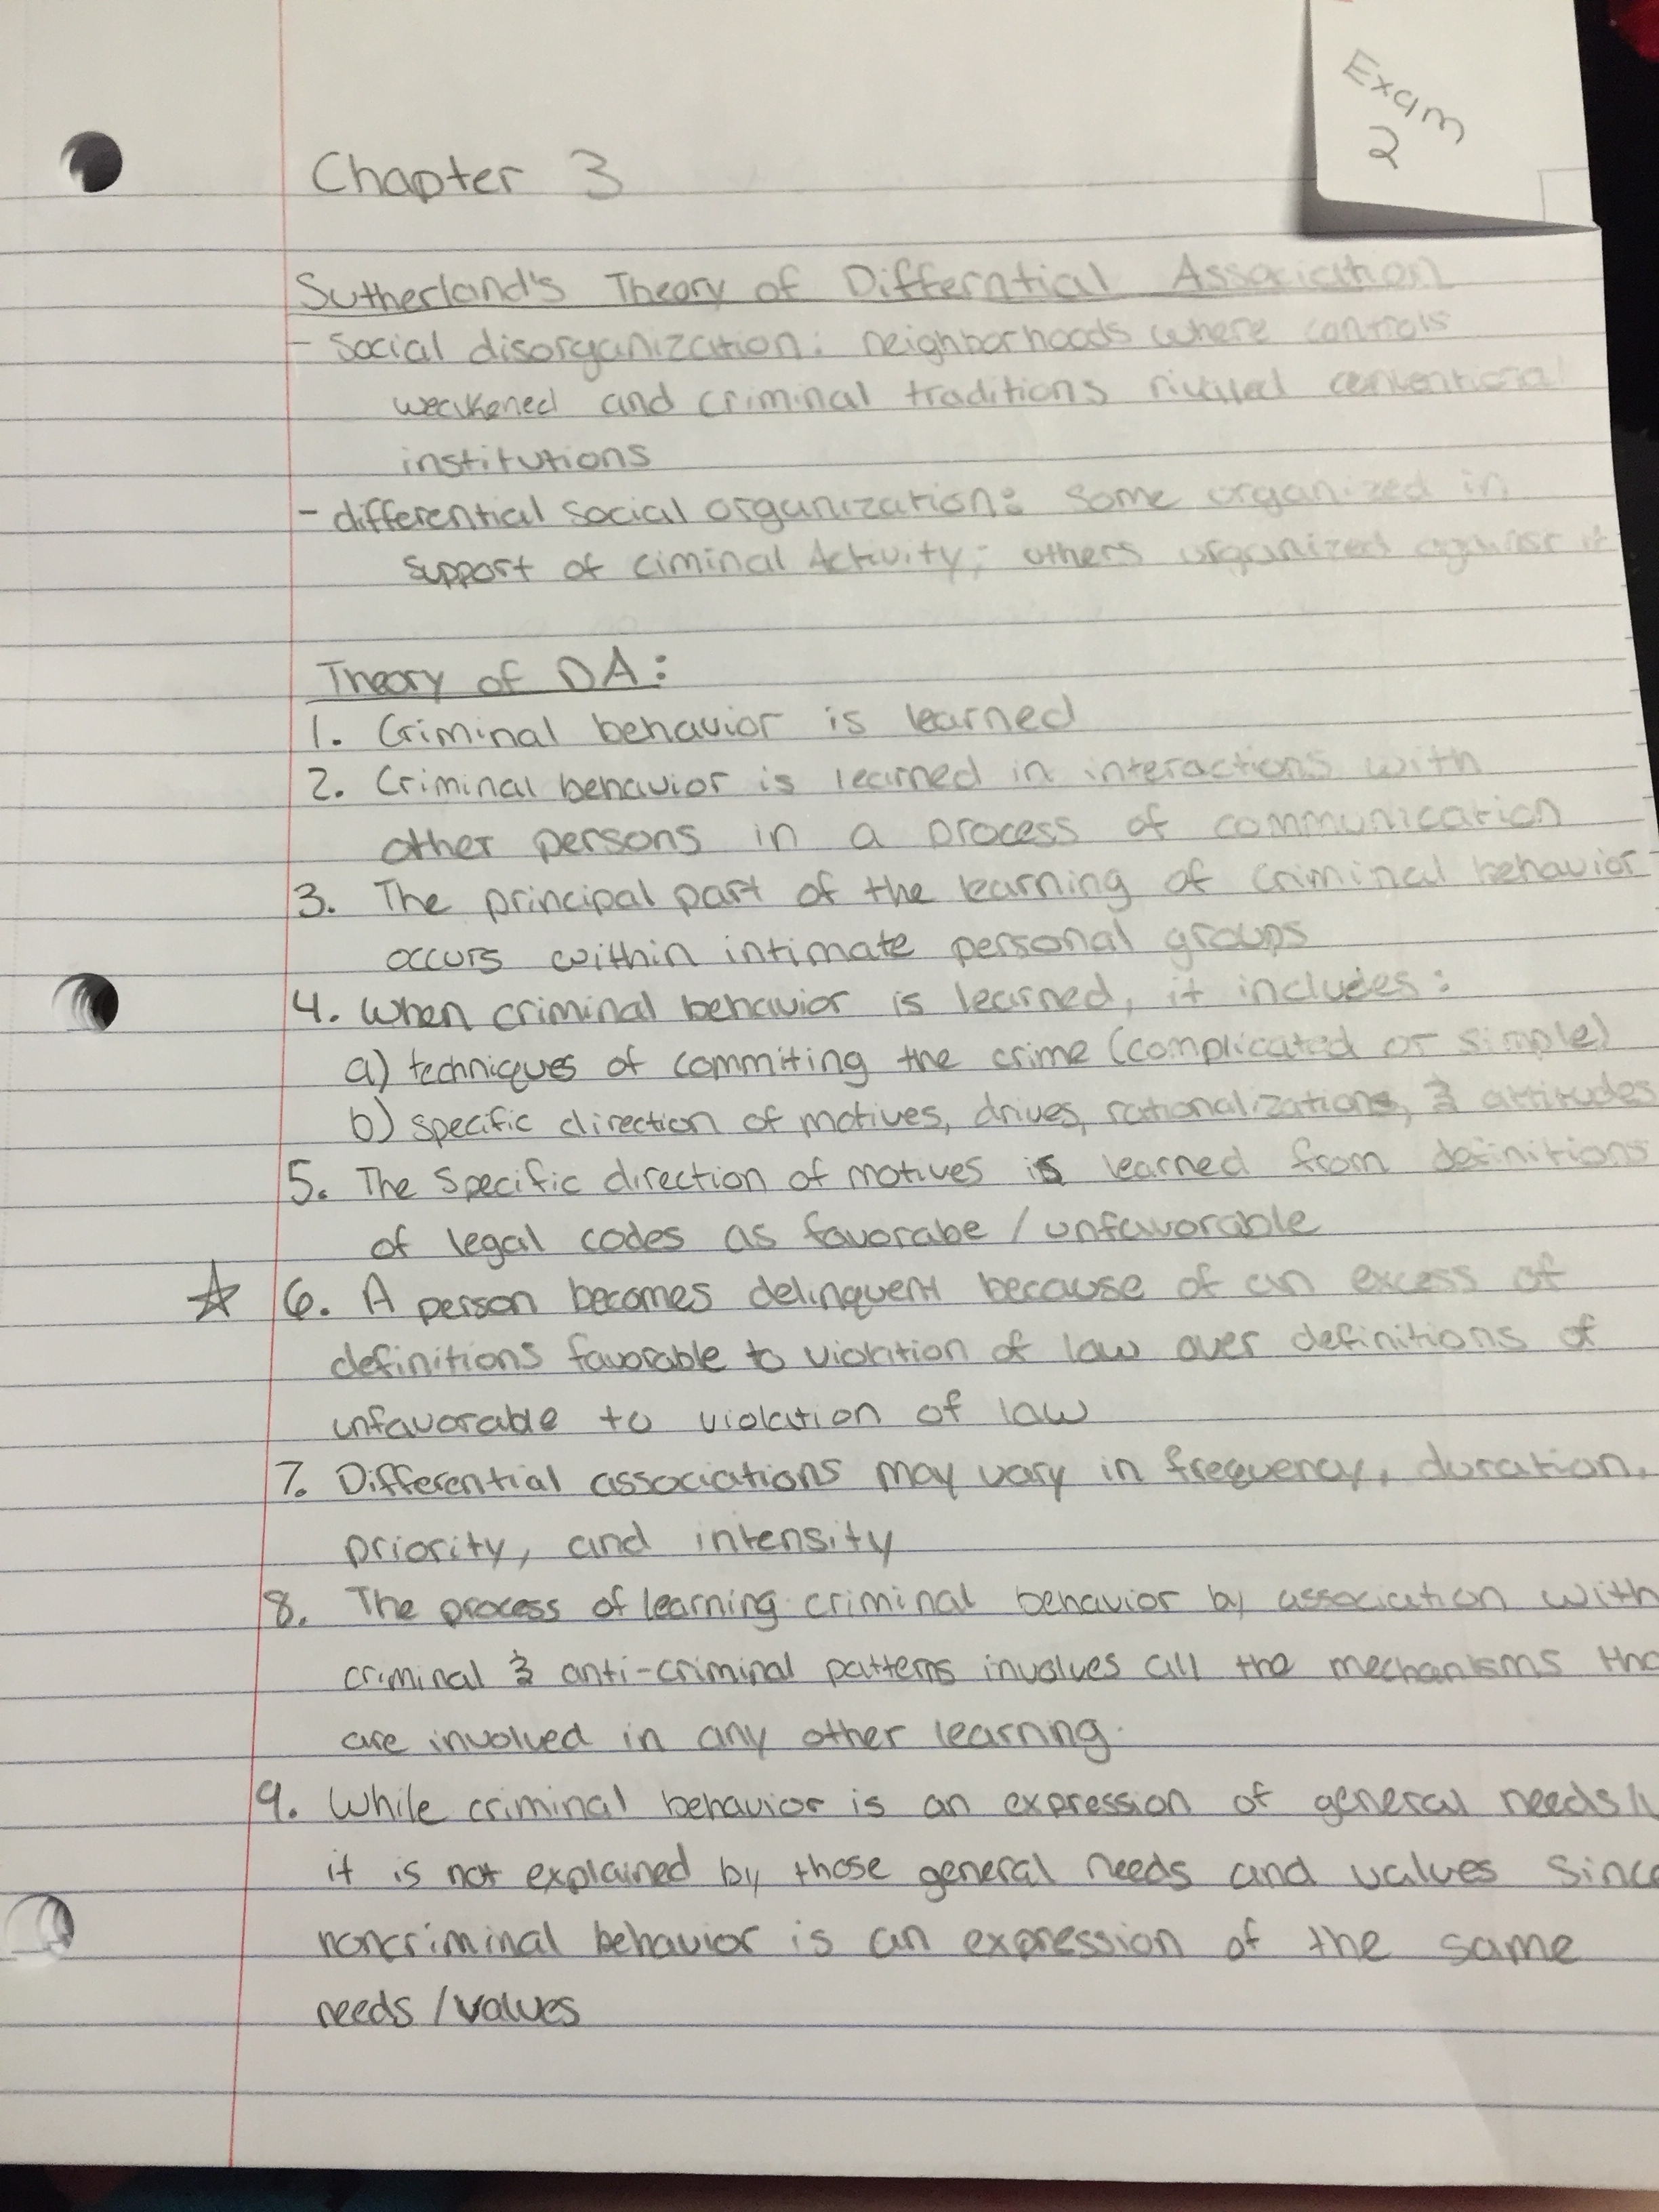 Exam
2
Chapter 3
Sutherland's Theory of Differntial Association
- Social disorganization: neighborhoods where controls
weakened and criminal traditions rivaled conventional
institutions
- differential social organization: some organized in
support of ciminal Activity; others organized against it
Theory of DA:
1. Criminal behavior is learned
2. Criminal behavior is learned in interactions with
other persons in a process of communication
3. The principal part of the learning of criminal behavior
occurs within intimate personal groups
4. When criminal behavior is learned, it includes:
a) techniques of commiting the crime (complicated or simple)
b) specific direction of motives, drives, rationalizations, & attitudes
5. The specific direction of motives is learned from definitions
of legal codes as favorabe / unfavorable
☆ 6. A person becomes delinquent because of an excess of
definitions favorable to violation of law over definitions of
unfavorable to violation of law
7. Differential associations may vary in frequency, duration,
priority, and intensity
8. The process of learning criminal behavior by association with
criminal & anti-criminal patterns involves all the mechanisms tha
are involved in any other learning.
9. While criminal behavior is an expression of general needs/
it is not explained by those general needs and values since
noncriminal behavior is an expression of the same
needs/values